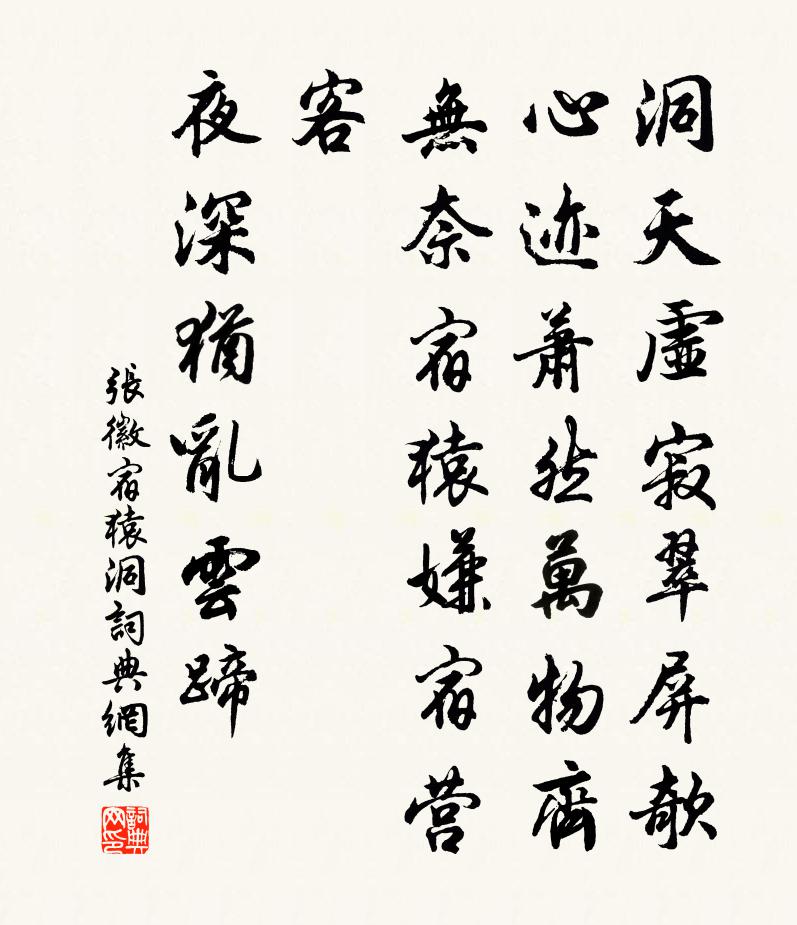 洞天虛寂翠屏欹
心迹蕭然萬物齊
無奈宿猿嫌宿营
客
夜深猶亂雲蹄
張徽宿猿洞詞典網集
詞典网印